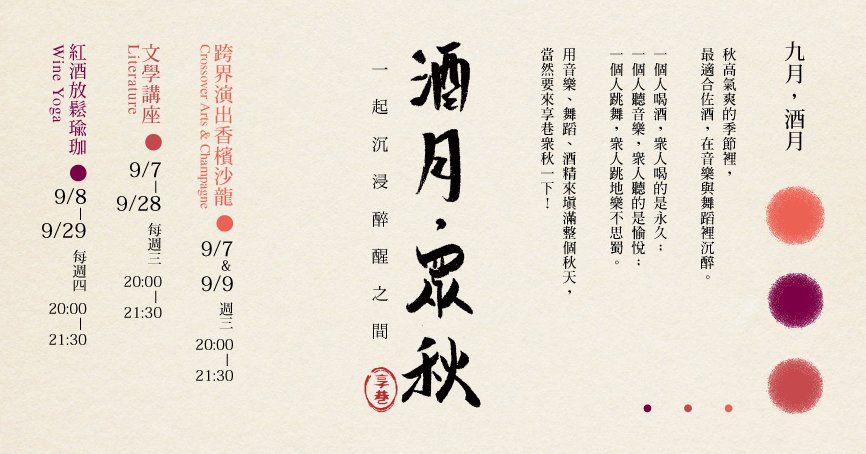 九月，酒月
秋高氣爽的季節裡，
最適合佐酒，在音樂與舞蹈裡沉醉。
一個人喝酒，衆人喝的是永久；
一個人聽音樂，衆人聽的是愉悅；
一個人跳舞，衆人跳地樂不思蜀。
用音樂、舞蹈、酒精來塡滿整個秋天，
當然要來享巷衆秋一下！
酒月，眾秋
享巷
一起沉浸醉醒之間
跨界演出香檳沙龍
Crossover Arts & Champagne
9/7
&
9/9
週三
20:00
|
21:30
文學講座
Literature
9/7
|
9/28
每週三
20:00
|
21:30
紅酒放鬆瑜珈
Wine Yoga
9/8
|
9/29
每週四
20:00
|
21:30